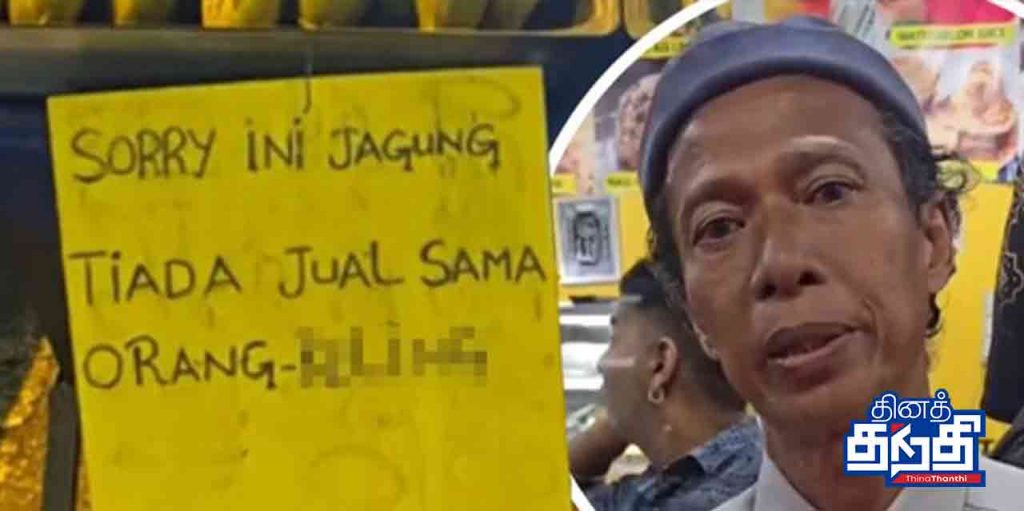 SORRY iNi JAGUNG
TiADA JUAL SAMA
ORANG-
தினத்
தந்தி
ThinaThanthi